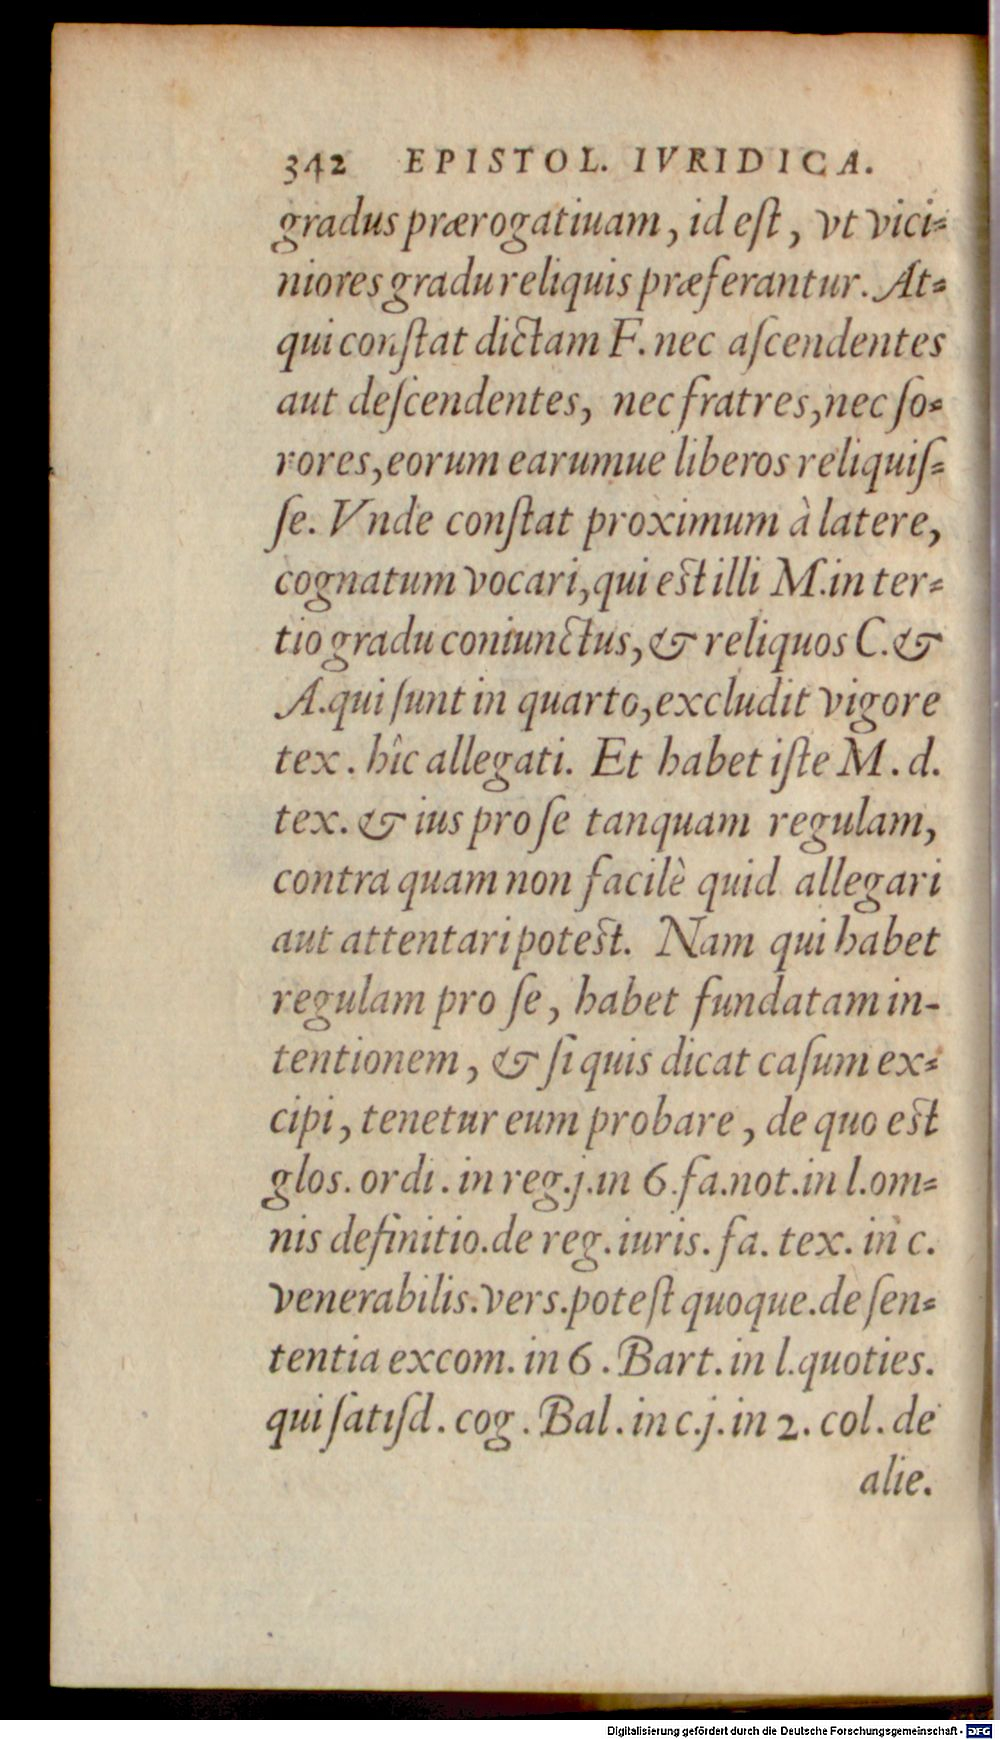 342 EPISTOL. IVRIDICA.
gradus prærogatiuam, id eſt, vt vici-
niores gradu reliquis præferantur. At-
qui conſtat dictam F. nec aſcendentes
aut deſcendentes, nec fratres, nec ſo-
rores, eorum earumue liberos reliquiſ-
ſe. Vnde conſtat proximum à latere,
cognatum vocari, qui eſt illi M. in ter-
tio gradu coniunctus, & reliquos C. &
A. qui ſunt in quarto, excludit vigore
tex. hîc allegati. Et habet iſte M. d.
tex. & ius pro ſe tanquam regulam,
contra quam non facilè quid allegari
aut attentari poteſt. Nam qui habet
regulam pro ſe, habet fundatam in-
tentionem, & ſi quis dicat caſum ex-
cipi, tenetur eum probare, de quo eſt
glos. ordi. in reg. j. in 6. fa. not. in l. om-
nis definitio. de reg. iuris. fa. tex. in c.
venerabilis. vers. poteſt quoque. de ſen-
tentia excom. in 6. Bart. in l. quoties.
qui ſatiſd. cog. Bal. in c. j. in 2. col. de
alie.
Digitalisierung gefördert durch die Deutsche Forschungsgemeinschaft - DFG